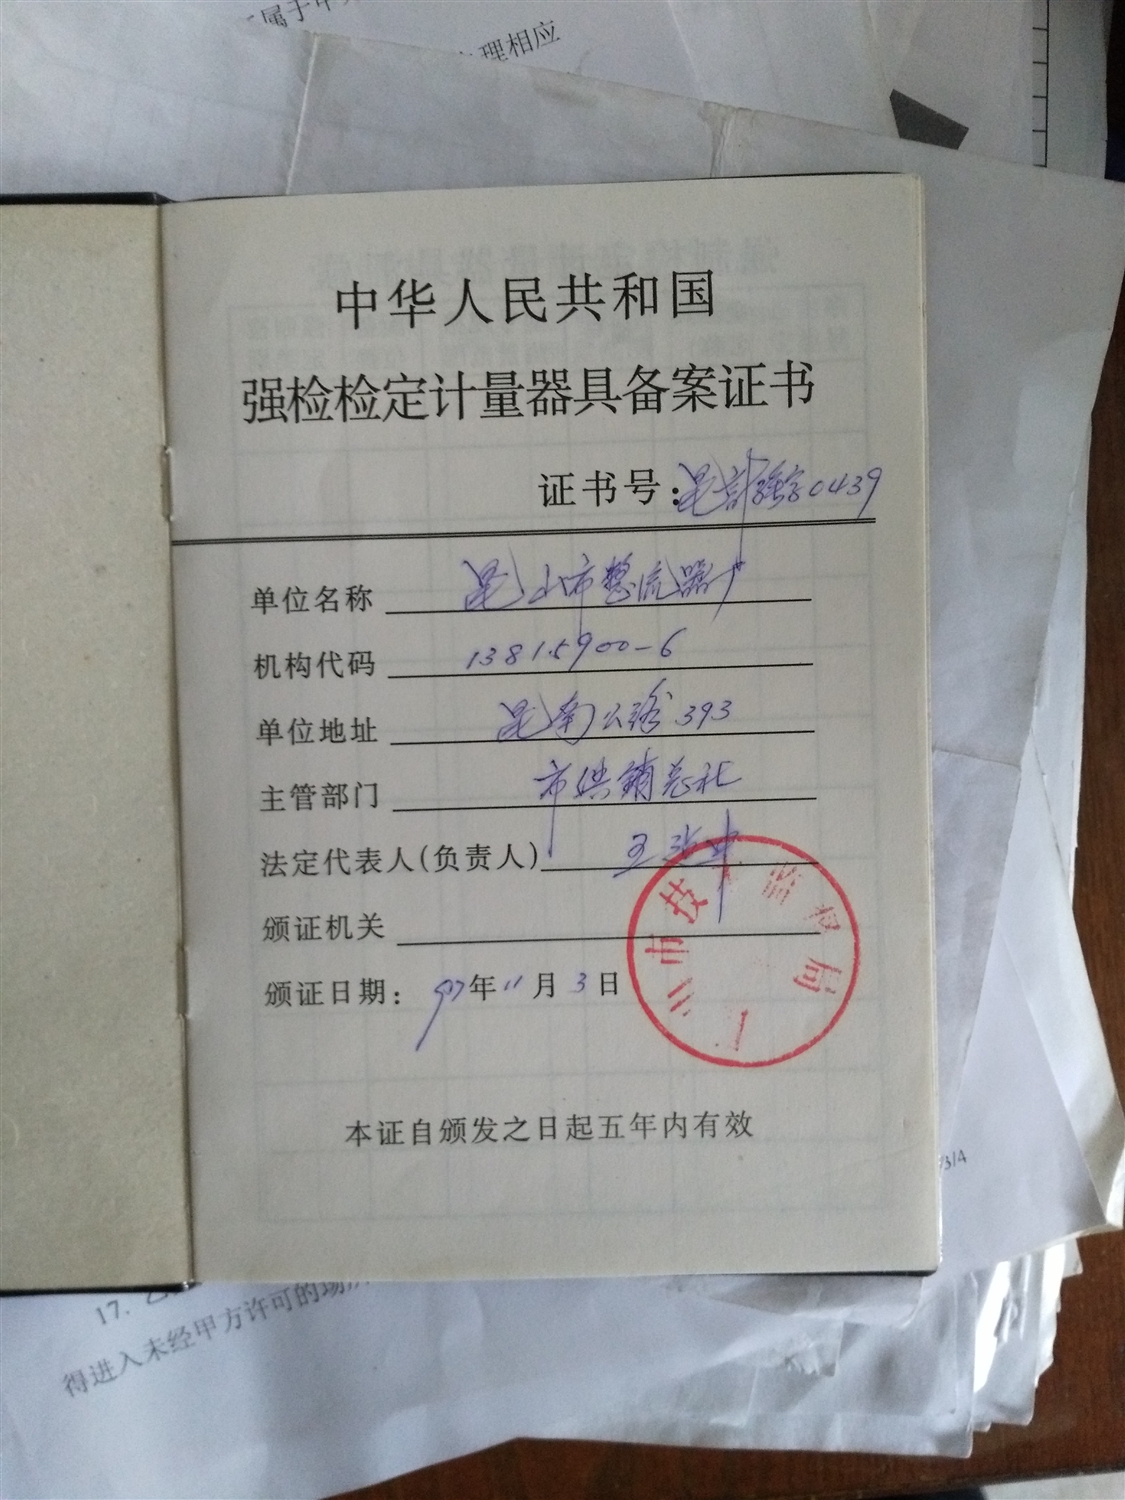 理相应
中华人民共和国
强检检定计量器具备案证书
证书号：昆计强字0439
单位名称 昆山市整流器厂
机构代码 13815900-6
单位地址 昆南公路393
主管部门 市供销总社
法定代表人(负责人) 王
颁证机关
市技术监督局
颁证日期： 97年11月3日
本证自颁发之日起五年内有效
3/4
17.
得进入未经甲方许可的场